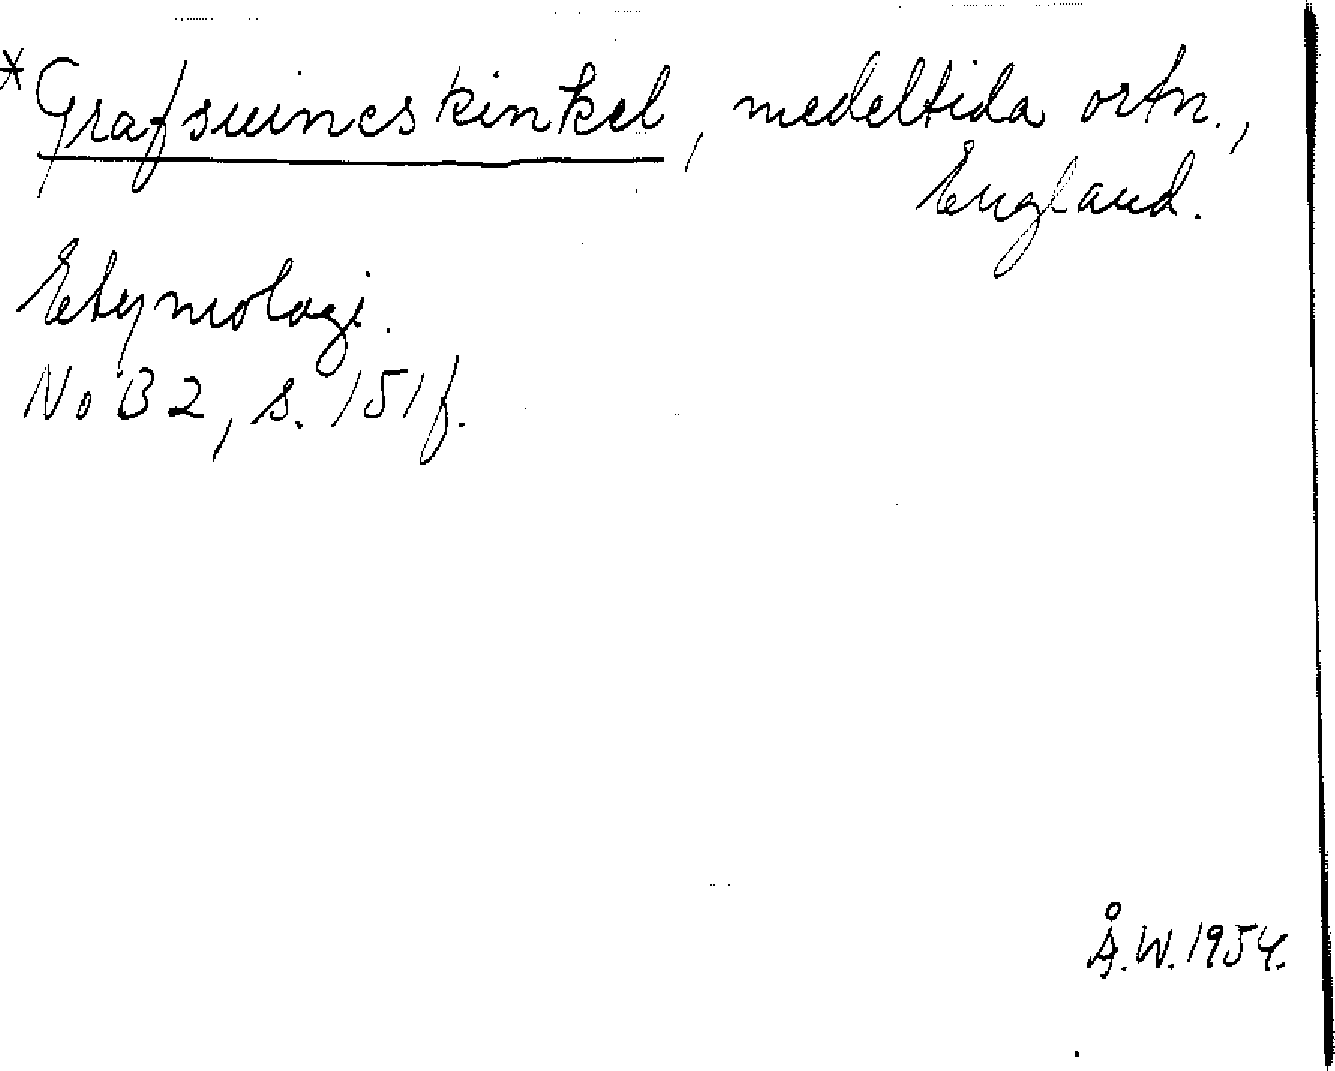 *Grafsuineskinkel, medeltida ortn.,
England.
Etymologi.
NoB 2, s. 151 f.
Å.W. 1954.